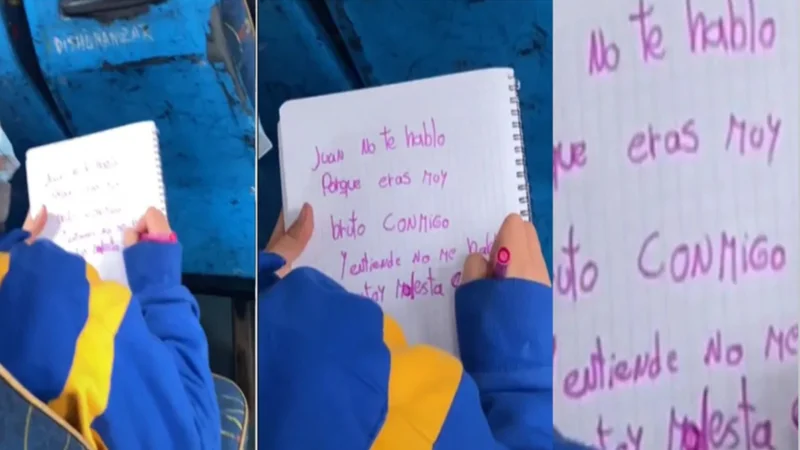 Juan No te hablo
Porque eras moy
bruto CONMIGO
Y entiende No me habl
toy Molesta
No te hablo
ue eras MOY
uto CONMIGO
entiende NO ME
toy Molesta